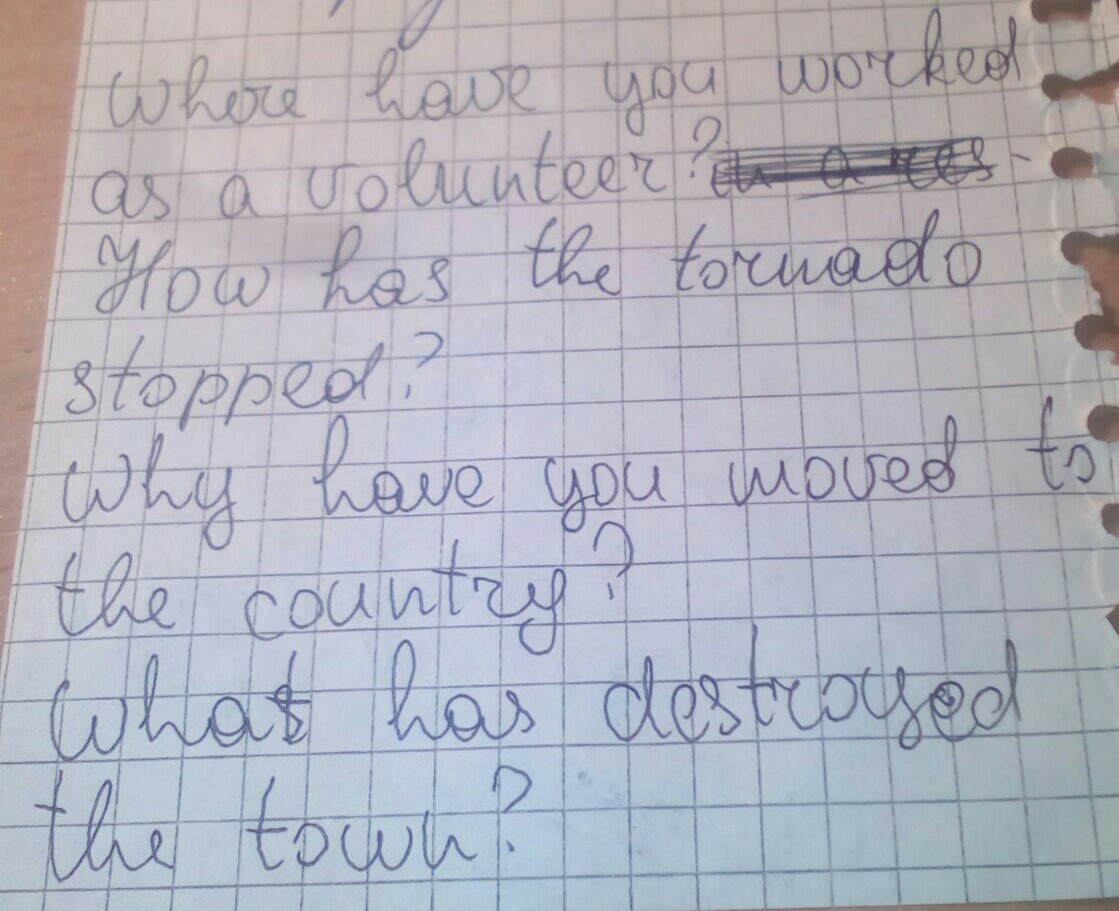 Where have you worked
as a volunteer?
How has the tornado
stopped?
Why have you moved to
the country?
What has destroyed
the town?